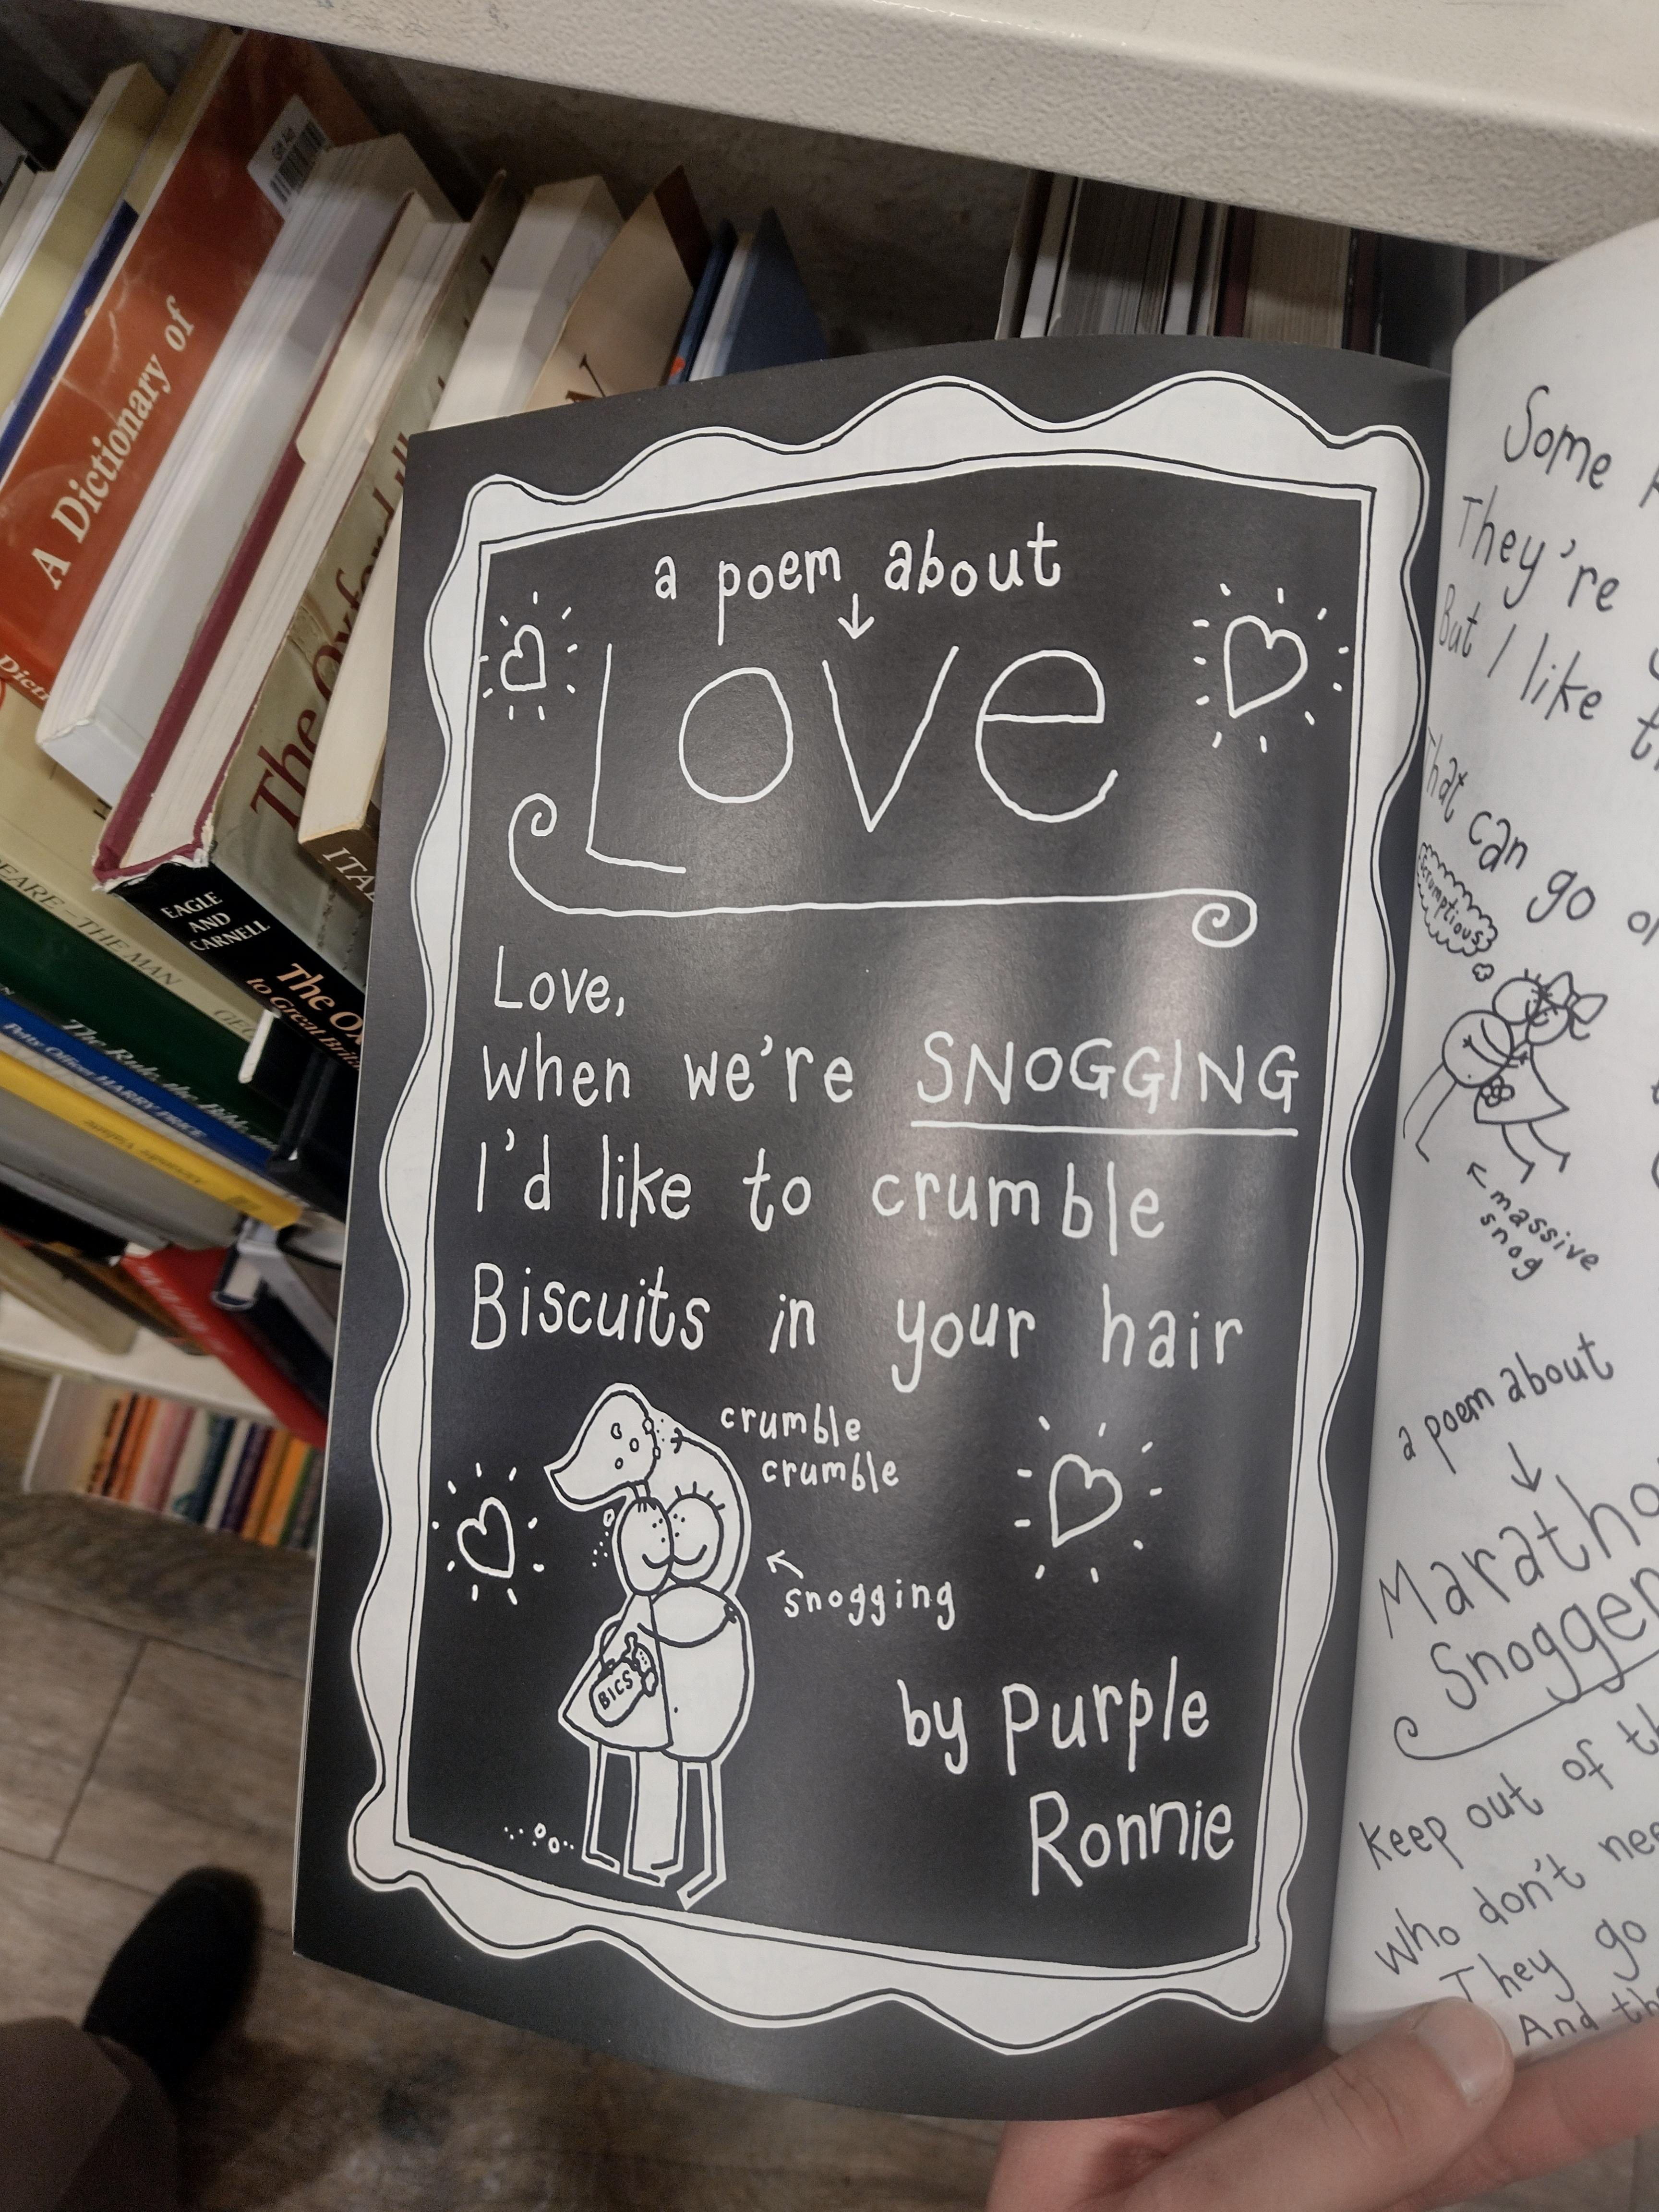 A Dictionary of
Dicti
The Oxford
ITA
EAGLE
AND
CARNELL
The Ox
to Great Brit
EARE - THE MAN
GE
The Ruby, the Bible,
Petty Officer HARRY PRICE
a poem about
Love
Love,
When we're SNOGGING
I'd like to crumble
Biscuits in your hair
crumble
crumble
snogging
BICS
by Purple
Ronnie
Some
They're
But I like
That can go
scrumptious
massive
snog
a poem about
Maratho
Snogger
Keep out of th
Who don't nee
They go
And th